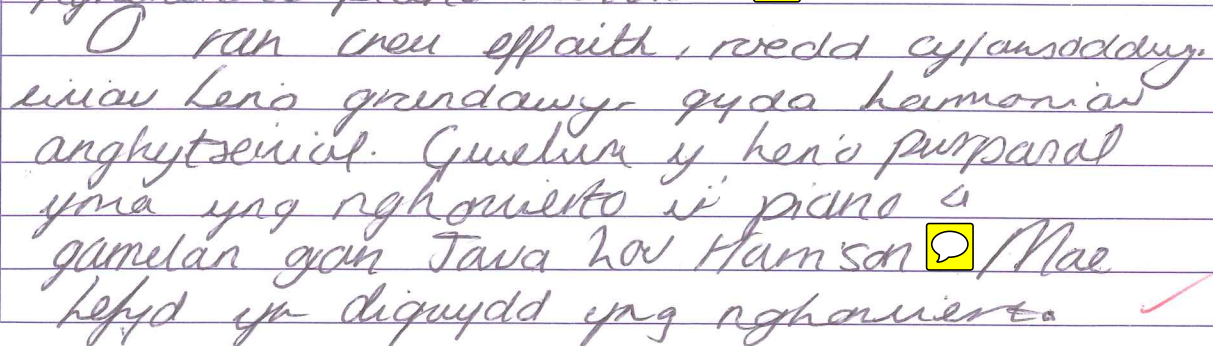 O ran creu effaith, roedd cyfansoddwyr
herio grandawyr gyda harmoniau
anghytseiniol. Gwelwn y herio purposal
yma yng nghonwerto i'r piano a
gamelan gan Java Lou Harrison Mae
hefyd yn digwydd yng nghonwerto